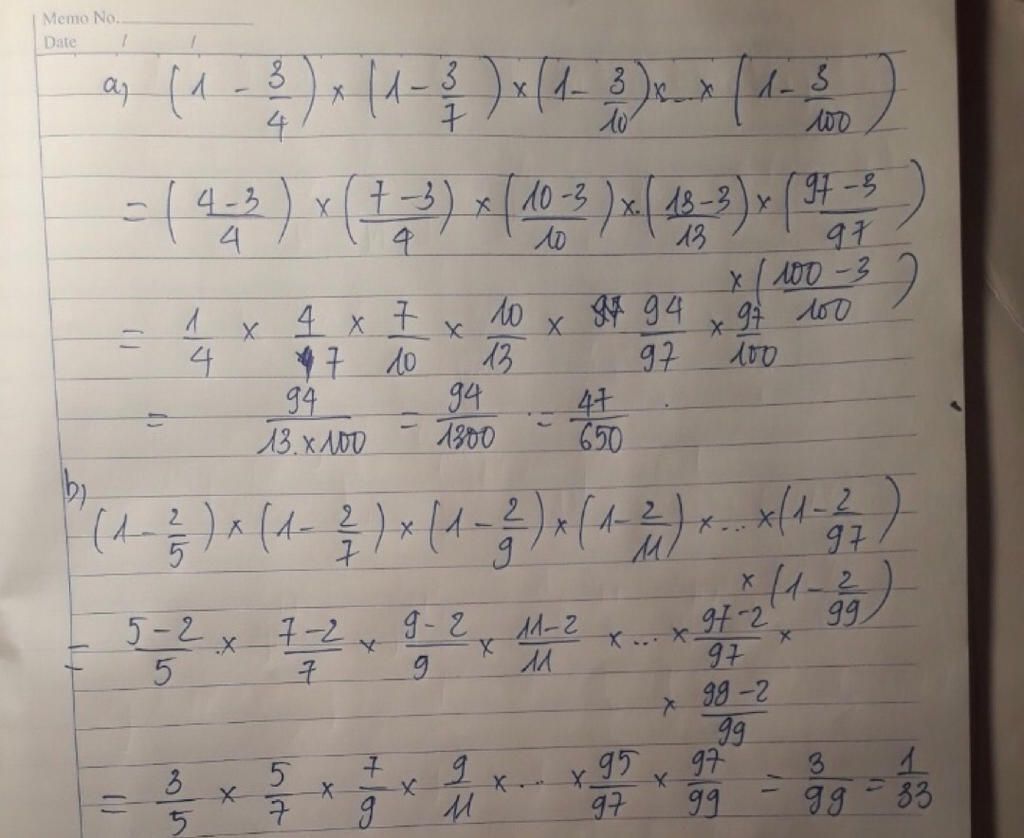 Memo No.
Date / /
a, (1 - 3/4) × (1 - 3/7) × (1 - 3/10) × ... × (1 - 3/100)
= (4-3/4) × (7-3/4) × (10-3/10) × . (13-3/13) × (97-3/97)
× (100-3/100)
= 1/4 × 4/7 × 7/10 × 10/13 × 94/97 × 97/100
= 94/13.×100 = 94/1300 = 47/650
b, (1 - 2/5) × (1 - 2/7) × (1 - 2/9) × (1 - 2/11) × ... × (1 - 2/97)
× (1 - 2/99)
= 5-2/5 . × 7-2/7 × 9-2/9 × 11-2/11 × ... × 97-2/97 ×
× 99-2/99
= 3/5 × 5/7 × 7/9 × 9/11 × ... × 95/97 × 97/99 = 3/99 = 1/33